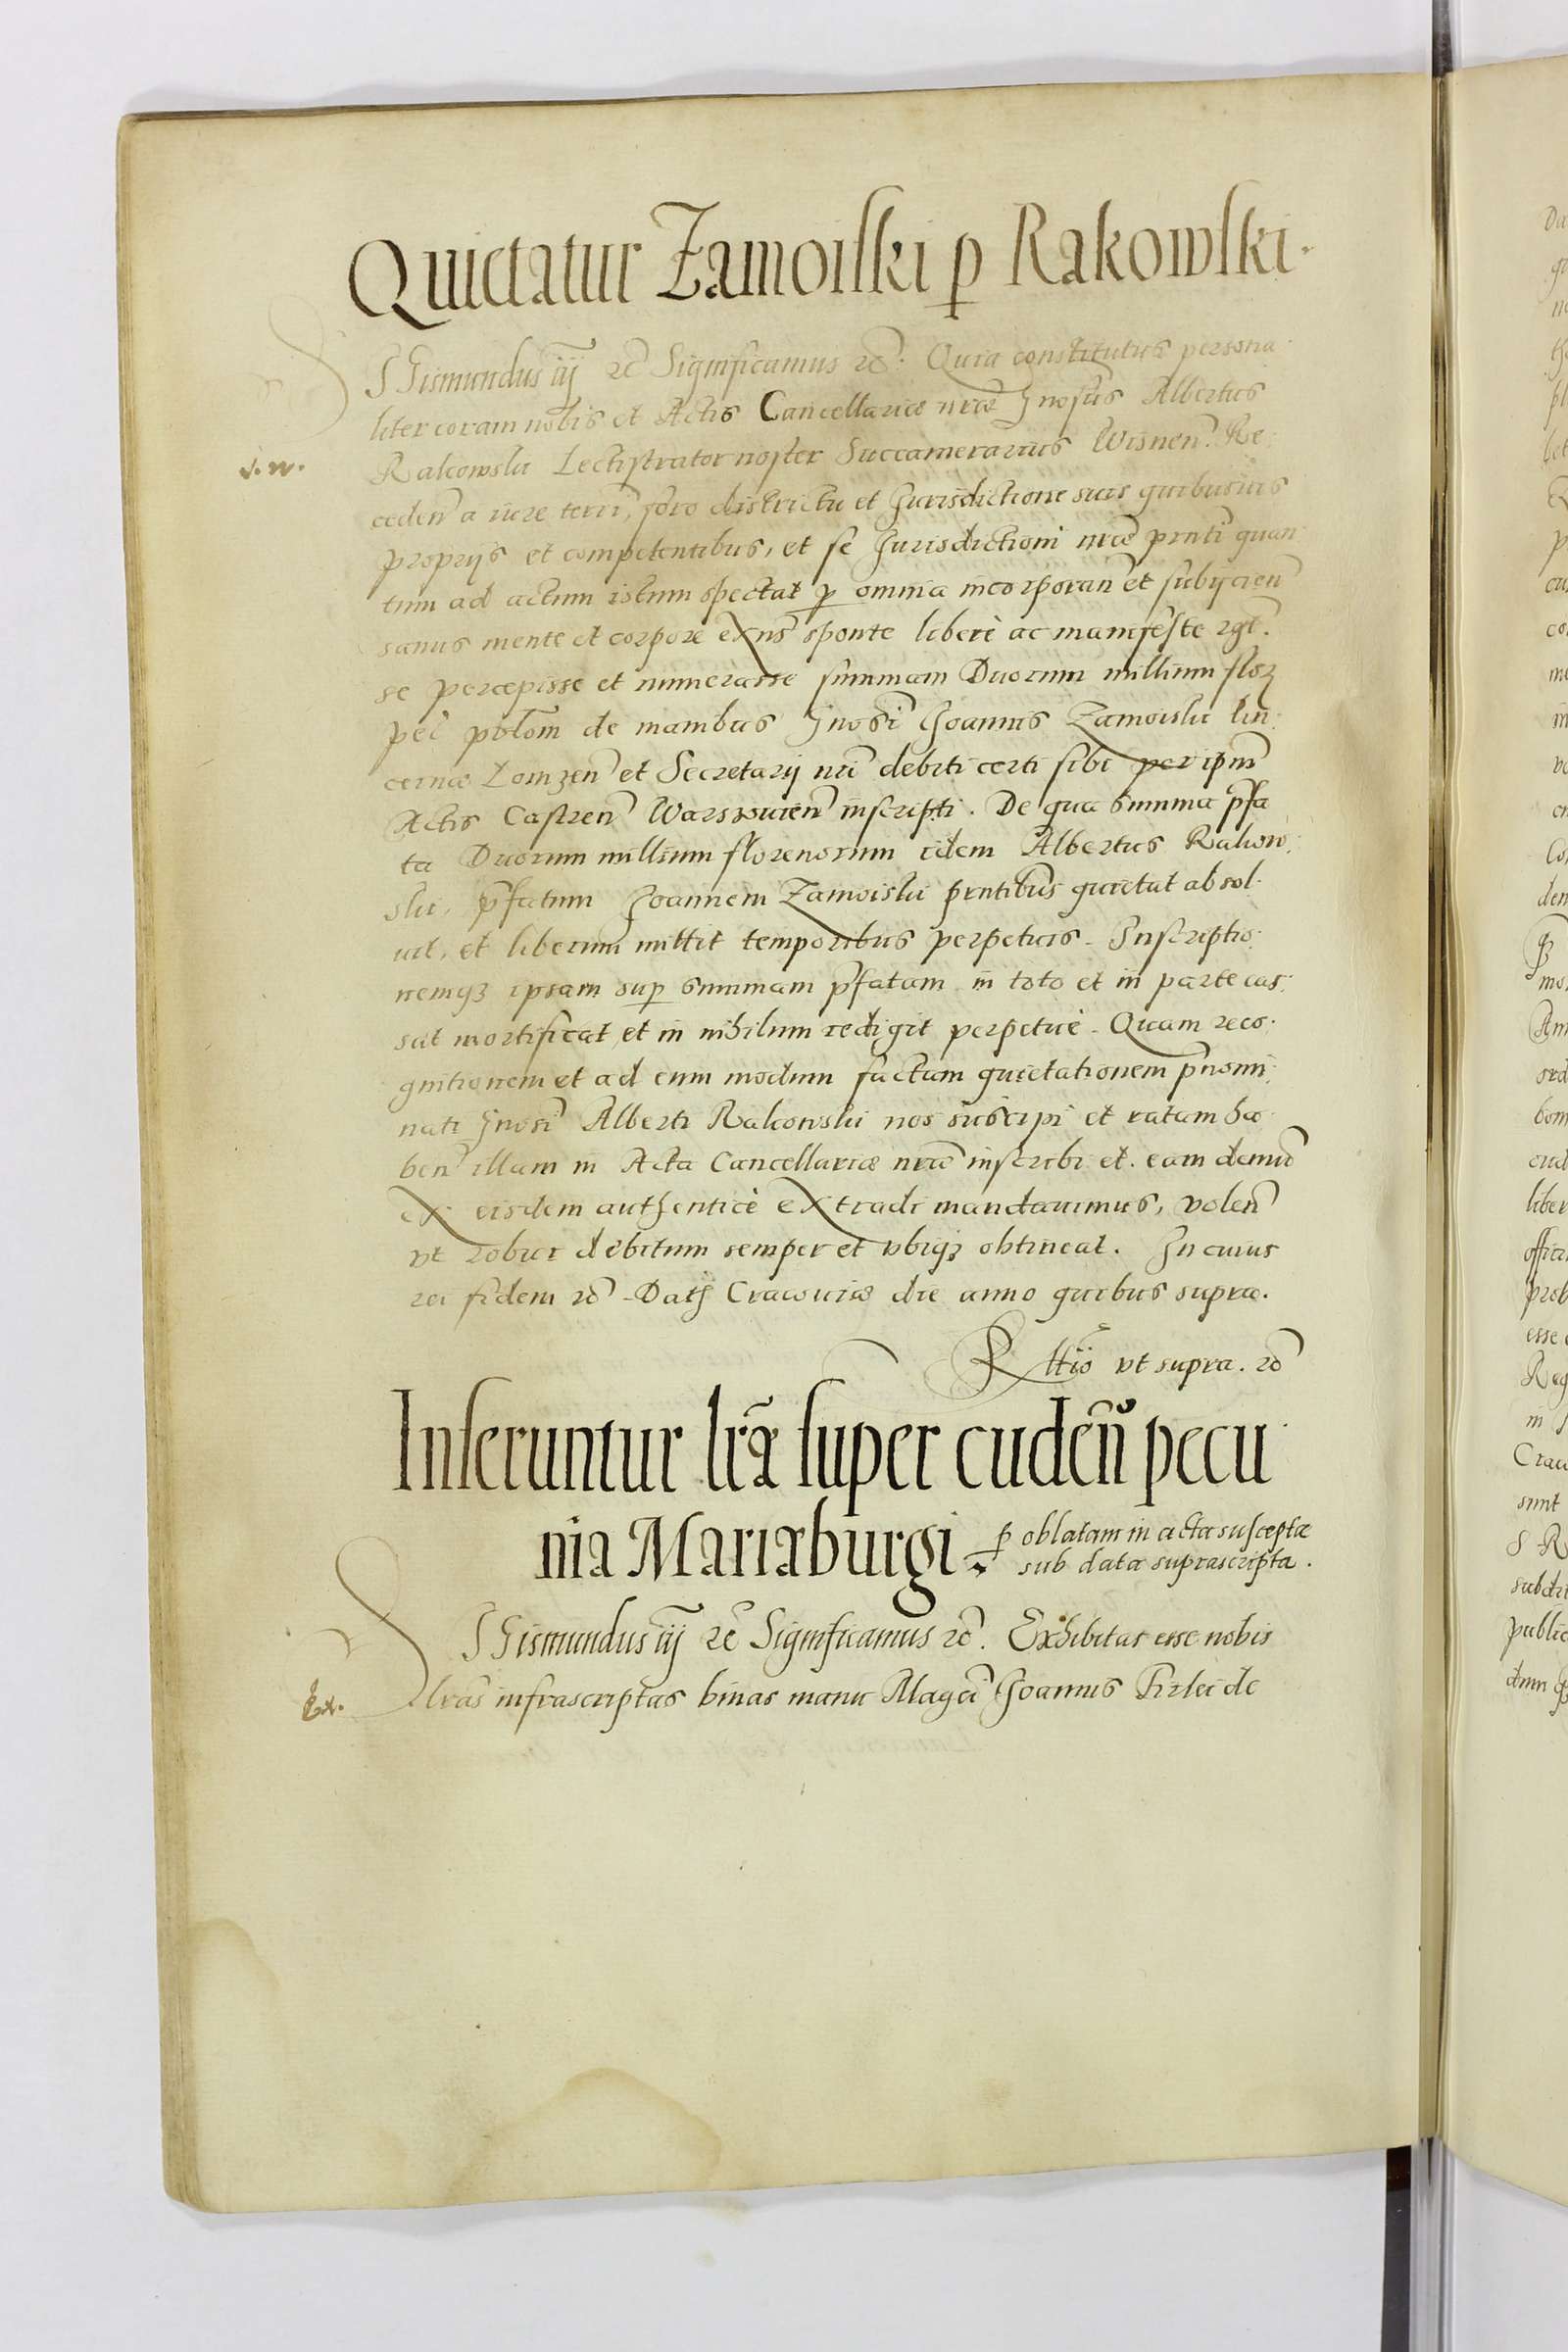 Quietatur Zamoiski p Rakowski.
SSigismundus iij etc Significamus etc. Quia constitutus persona
liter coram nobis et Actis Cancellariæ nræ Gnosus Albertus
J. W.
Rakowski Lectistrator noster Succamerarius Wisnen. Re
ceden a iure terri, foro districtu et Jurisdictione suis quibusuis
proprijs et competentibus, et se Jurisdictioni nræ prnti quan
tum ad actum istum spectat p omnia incorporan et subijcien
sanus mente et corpore exns sponte liberè ac manifeste rgt.
se percepisse et numerasse summam Duorum millium florz
pec polom de manibus Gnosi Joannis Zamoiski Pin
cernæ Lomzen et Secretarij nri debiti certi sibi per ipm
Actis Castren Warssouien inscripti. De qua summa pfa
ta Duorum millium florenorum idem Albertus Rakow
ski, pfatum Joannem Zamoiski prntibus quietat absol
uit, et liberum mittit temporibus perpetuis. Inscriptio
nemqz ipsam sup summam pfatam in toto et in parte cas
sat mortificat et in nihilum redigit perpetuè. Quam reco
gnitionem et ad eum modum factam quietationem pnomi
nati Gnosi Alberti Rakowski nos suscipi et ratam ha
ben illam in Acta Cancellariæ nræ inscribi et eam demu
ex eisdem authenticè extradi mandauimus, volen
vt robur debitum semper et vbiqz obtineat. In cuius
rei fidem etc Datz Cracouiæ die anno quibus supra.
Rttio vt supra. etc
Inseruntur lræ super cuden pecu
nia Mariæburgi p oblatam in acta susceptæ
sub data suprascripta.
SSigismundus iij etc Significamus etc. Exhibitas esse nobis
lras infrascriptas binas manu Magci Joannis Firlei de